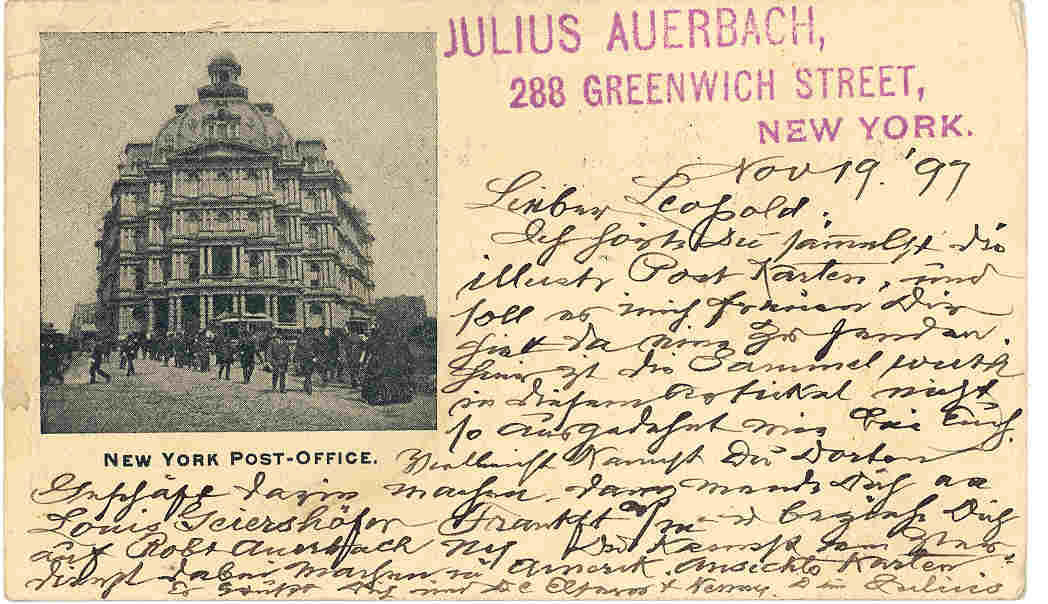 JULIUS AUERBACH,
288 GREENWICH STREET,
NEW YORK.
Nov 19. '97
Lieber Leopold.
Ich hörte Du sammelst die
illustr Post Karten, und
soll es mich freuen Dir
hier da eine zu senden.
Hier ist die Sammel wuth
in diesem Artikel nicht
so ausgedehnt wie bei Euch.
NEW YORK POST-OFFICE.
Vielleicht kannst Du dorten
Geschäft darin machen, dann wende Dich an
Louis Geiershöfer Frankft a/m u beziehe Dich
auf Robt Auerbach NY Du kannst
dienst dabei machen in Amerik. Ansichts Karten
Es grüßt Dich und Julius